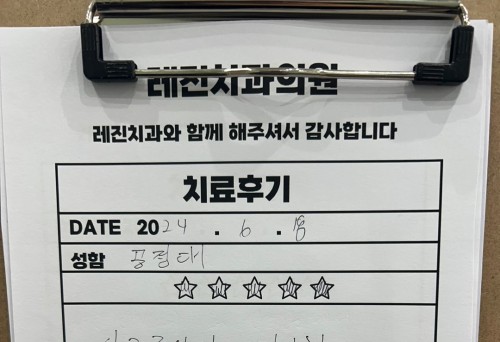 레진치과의원
레진치과와 함께 해주셔서 감사합니다
치료후기
DATE 2024 . 6 . 18
성함